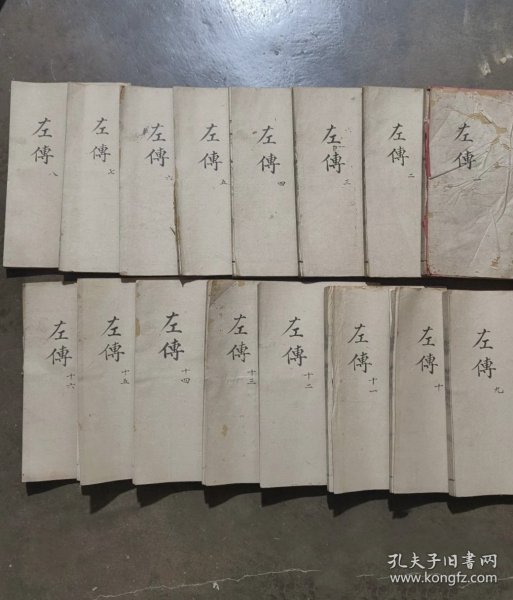 左傳
左傳 二
左傳 三
左傳 四
左傳 五
左傳 六
左傳 七
左傳 八
左傳 九
左傳 十
左傳 十一
左傳 十二
左傳 十三
左傳 十四
左傳 十五
左傳 十六
孔夫子旧书网
www.kongfz.com